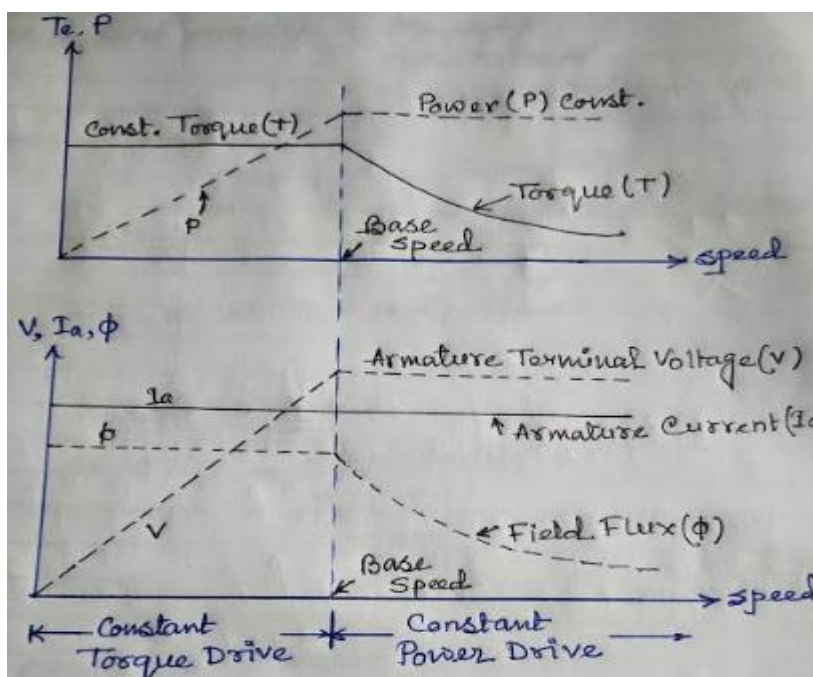 Te, P
Power(P) Const.
Const. Torque(T)
Torque(T)
P
Base
Speed
speed
V, Ia, φ
Armature Terminal Voltage(V)
Ia
Armature Current(Ia
φ
V
Field Flux(φ)
Base
Speed
speed
Constant
Torque Drive
Constant
Power Drive